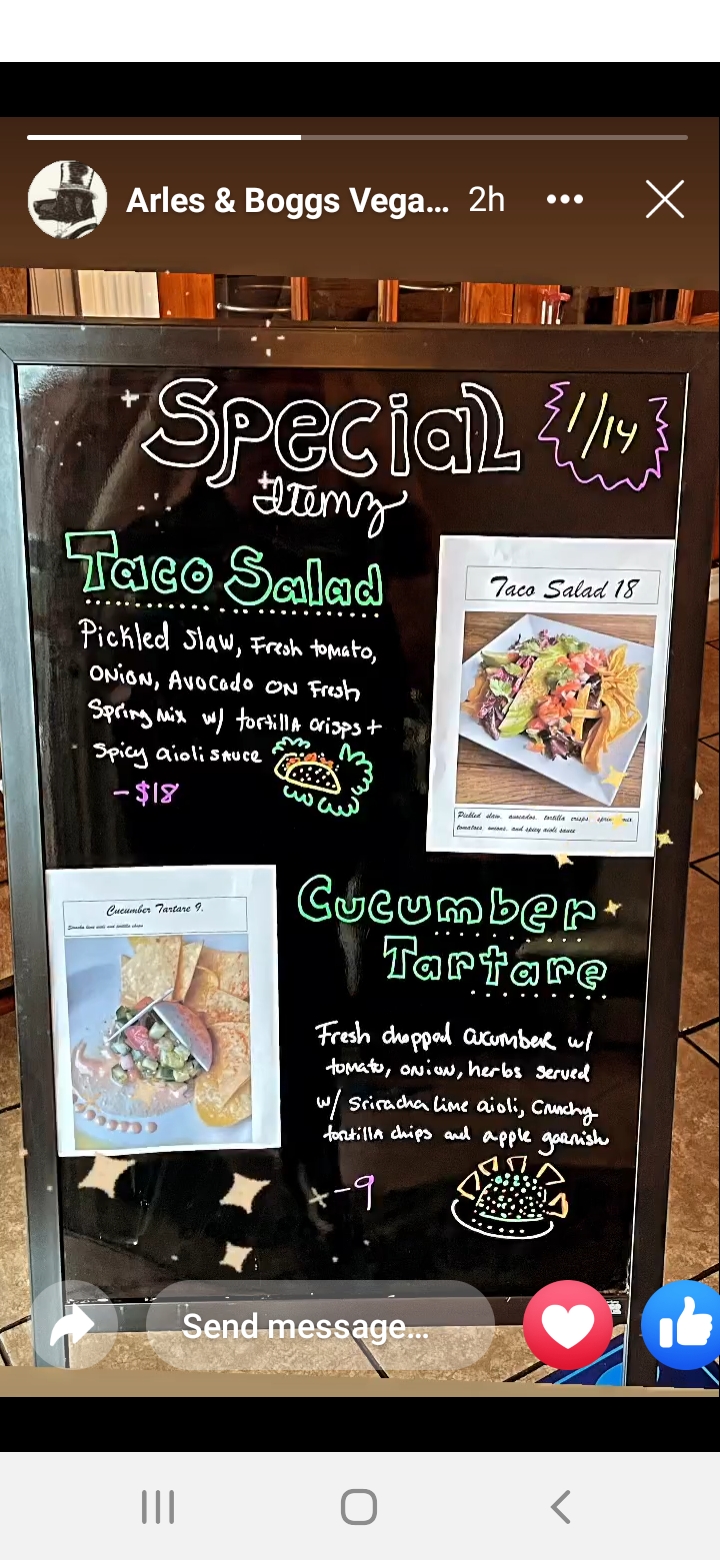 Arles & Boggs Vega...
2h
Special
1/14
Itemz
Taco Salad
Pickled slaw, Fresh tomato,
Onion, Avocado on Fresh
Spring Mix w/ tortilla crisps +
spicy aioli sauce
-$18
Taco Salad 18
Pickled slaw, avocados, tortilla crisps, spring mix,
tomatoes, onions, and spicy aioli sauce
Cucumber Tartare 9.
Sriracha lime aioli and tortilla chips
Cucumber
Tartare
Fresh chopped cucumber w/
tomato, onion, herbs served
w/ Sriracha lime aioli, Crunchy
tortilla chips and apple garnish
-9
Send message...